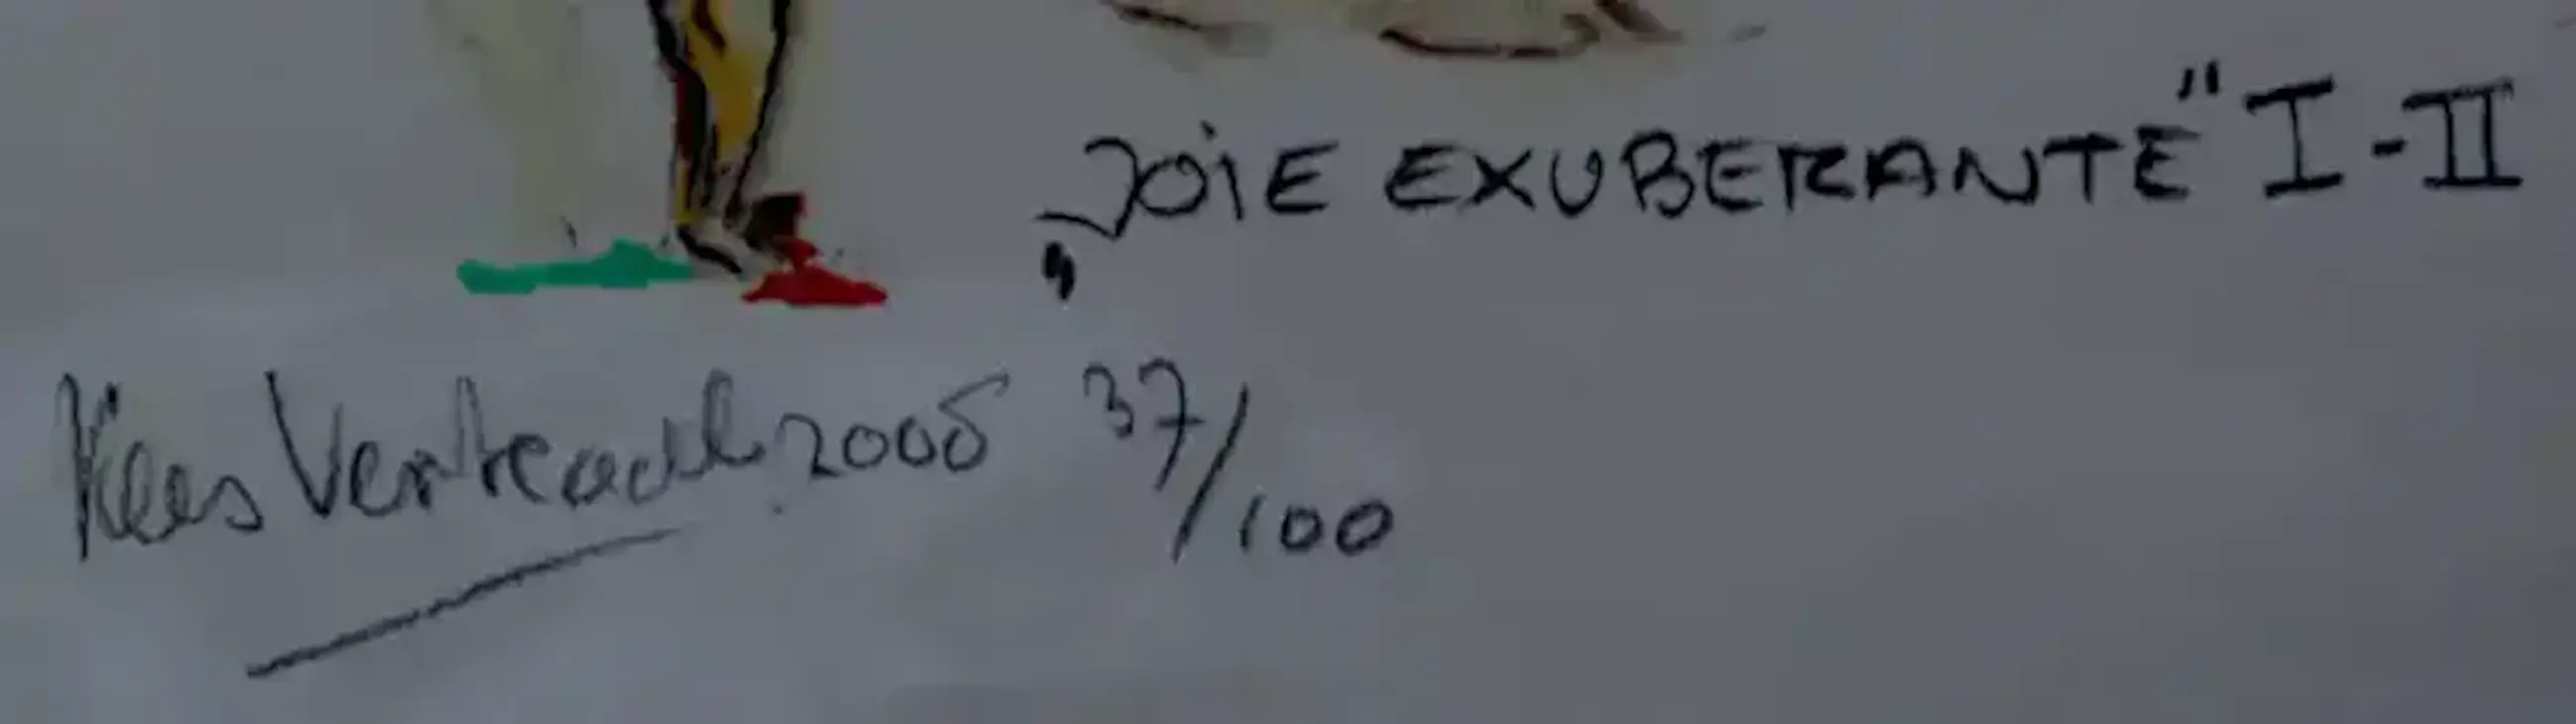 „JOIE EXUBERANTE" I-II
Kees Verkade 2005 37/100